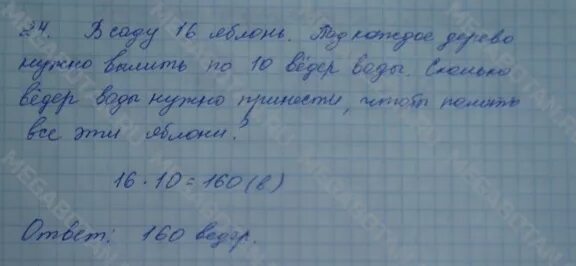 24. В саду 16 яблонь. Под каждое дерево
нужно вылить по 10 вёдер воды. Сколько
вёдер воды нужно принести, чтобы полить
все эти яблони?
16 · 10 = 160 (в)
Ответ: 160 ведер.
MEGABOTAN.RU